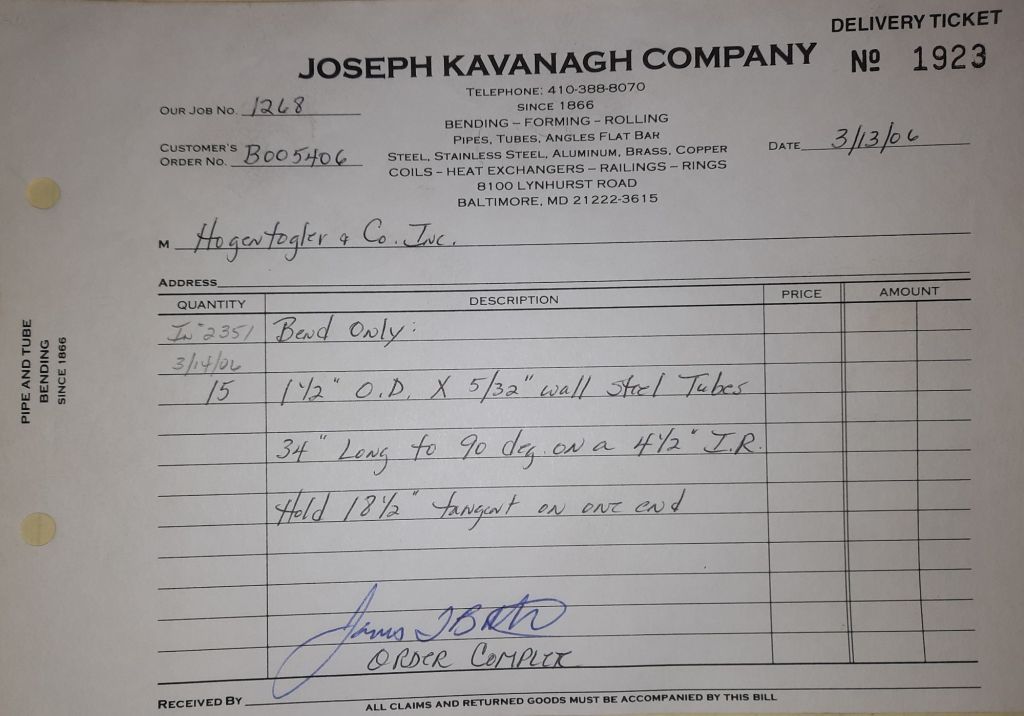 DELIVERY TICKET
JOSEPH KAVANAGH COMPANY
Nº 1923
TELEPHONE: 410-388-8070
SINCE 1866
OUR JOB NO. 1268
BENDING – FORMING – ROLLING
PIPES, TUBES, ANGLES FLAT BAR
CUSTOMER'S
ORDER NO. B005406
STEEL, STAINLESS STEEL, ALUMINUM, BRASS, COPPER
DATE 3/13/06
COILS – HEAT EXCHANGERS – RAILINGS – RINGS
8100 LYNHURST ROAD
BALTIMORE, MD 21222-3615
M Hogentogler & Co. Inc.
ADDRESS
QUANTITY DESCRIPTION PRICE AMOUNT
In# 2351 Bend Only:
3/14/06
15 1 1/2" O.D. X 5/32" wall Steel Tubes
34" Long to 90 deg. on a 4 1/2" I.R.
Hold 18 1/2" tangent on one end
James
ORDER COMPLETE
RECEIVED BY
ALL CLAIMS AND RETURNED GOODS MUST BE ACCOMPANIED BY THIS BILL
PIPE AND TUBE
BENDING
SINCE 1866